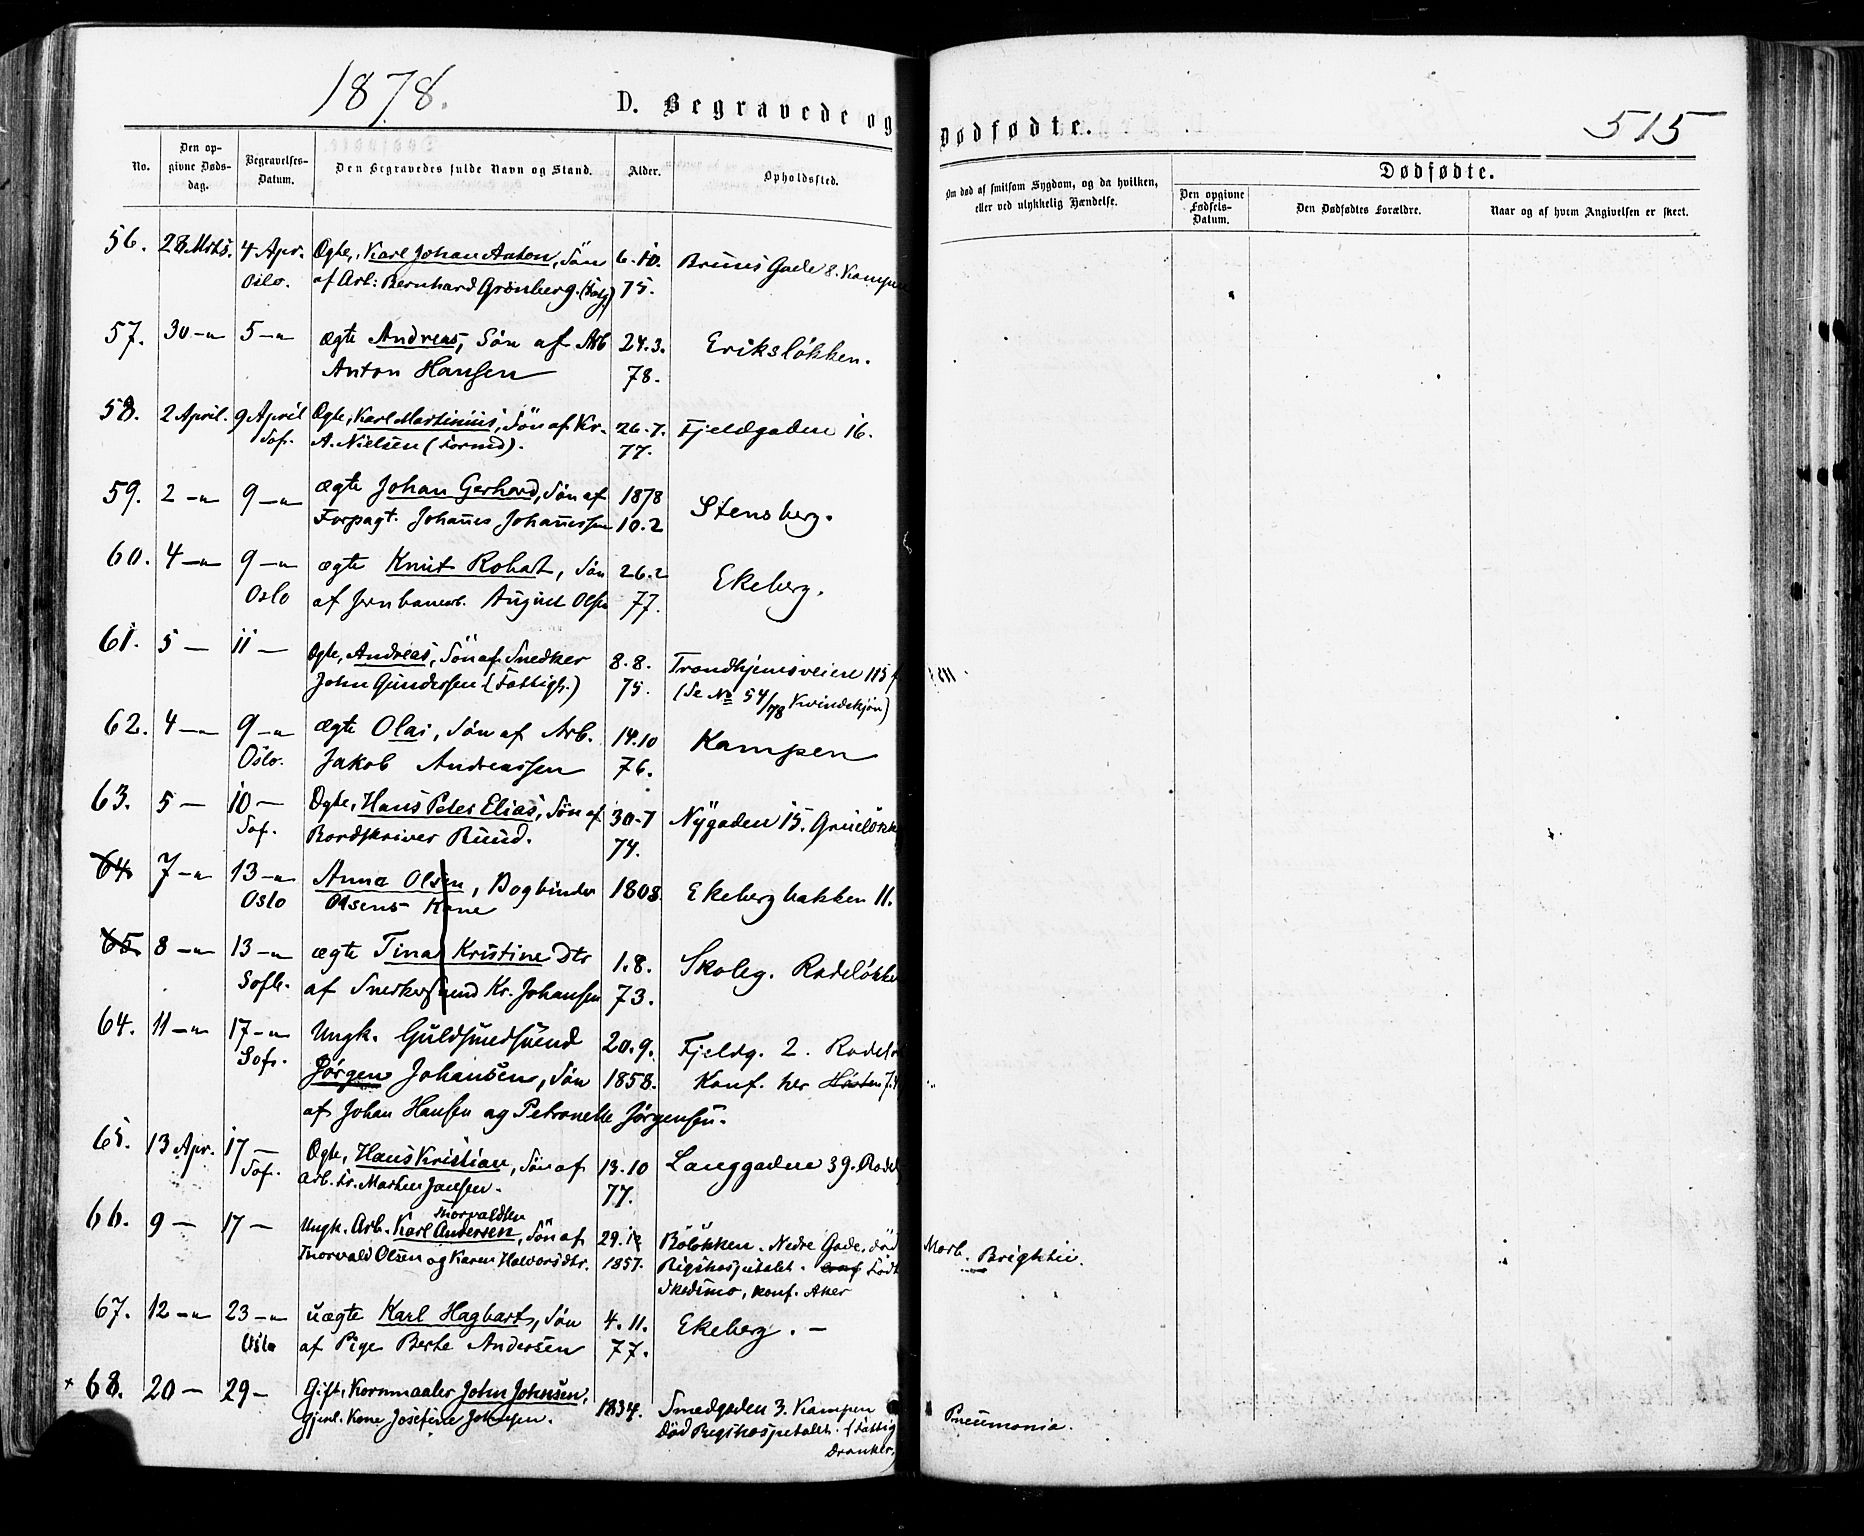 1878.
D. Begravede og Dødfødte.
515
No.
Den opgivne Dødsdag.
Begravelses-Datum.
Den Begravedes fulde Navn og Stand.
Alder.
Opholdssted.
Om død af smitsom Sygdom, og da hvilken,
eller ved ulykkelig Hændelse.
Dødfødte.
Den opgivne Fødsels-Datum.
Den Dødfødtes Forældre.
Naar og af hvem Angivelsen er skeet.
56. 28 Mrts. 4 Apr. Ægte, Karl Johan Anton, Søn 6.10. Bruns Gade 8. Kampen
Oslo. af Arb: Bernhard Grønberg. 75.
57. 30 — 5 — ægte Andreas, Søn af Arb 24.3. Eriksløkken.
Anton Hansen 78.
58. 2 April. 9 April Ægte, Karl Martinius, Søn af Kr. 26.7. Fjeldgaden 16.
Sof. A. Nielsen (Formd). 77.
59. 2 — 9 — ægte Johan Gerhard, Søn af 1878 Stensberg.
Forpagt. Johannes Johannessen 10.2
60. 4 — 9 — ægte Knut Robert, Søn 26.2 Ekeberg.
Oslo af Jernbanearb. August Olsen 77.
61. 5 — 11 — Ægte, Andreas, Søn af Snedker 8.8. Trondhjemsveien 115
John Gundersen (Fattigh.) 75. (Se No 54/78 Kvindekjøn)
62. 4 — 9 — ægte Olai, Søn af Arb. 14.10 Kampen
Oslo. Jakob Andreassen 76.
63. 5 — 10 — Ægte, Hans Peter Elias, Søn af 30.7 Nygaden 15. Grüneløkk
Sof. Bordskriver Ruud. 74.
64 7 — 13 — Anna Olsen, Bogbinder 1808. Ekebergbakken 11.
Oslo Olsens Kone
65 8 — 13 — ægte Tina Kristine Dtr 1.8. Skoleg. Rodeløkke
Sofb. af Snerkersvend Kr. Johansen 73.
64. 11 — 17 — Ungk. Guldsmedsvend 20.9. Fjeldg. 2. Rodel
Sof. Jørgen Johansen, Søn 1858. Konf. her Høsten
af Johan Hansen og Petronelle Jørgensen.
65. 13 Apr. 17 — Ægte, Hans Kristian, Søn af 13.10 Langgaden 39. Rodel
Sof. Arb. Kr. Martin Jansen. 77.
Thorvaldsen
66. 9 — 17 — Ungk. Arb. Karl Andersen, Søn af 29.12 Bøløkken. Nedre Gade. død Morb. Brightii.
Thorvald Olsen og Karen Halvorsdtr. 1857. Rigshospitalet. Konf Født
Skedsmo, Konf. Aker
67. 12 — 23 — uægte Karl Hagbart, Søn 4.11. Ekeberg. —
Oslo af Pige Berte Andersen 77.
× 68. 20 — 29 — Gift, Kornmaaler John Johnsen, 1834. Smedgaden 3. Kampen Pneumonia.
Gjenl. Kone Josefine Johnsen. Død Rigshospitalet. (Fattig
Dranker)